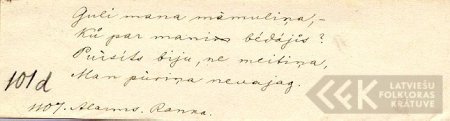 Guli mana māmuliņa,-
Kŭ par manim bēdājis?
Pŭisits biju, ne meitiņa,
Man pūriņa nevajag.
101d
1107. Alauns. Ranka.
LATVIEŠU
FOLKLORAS
KRĀTUVE